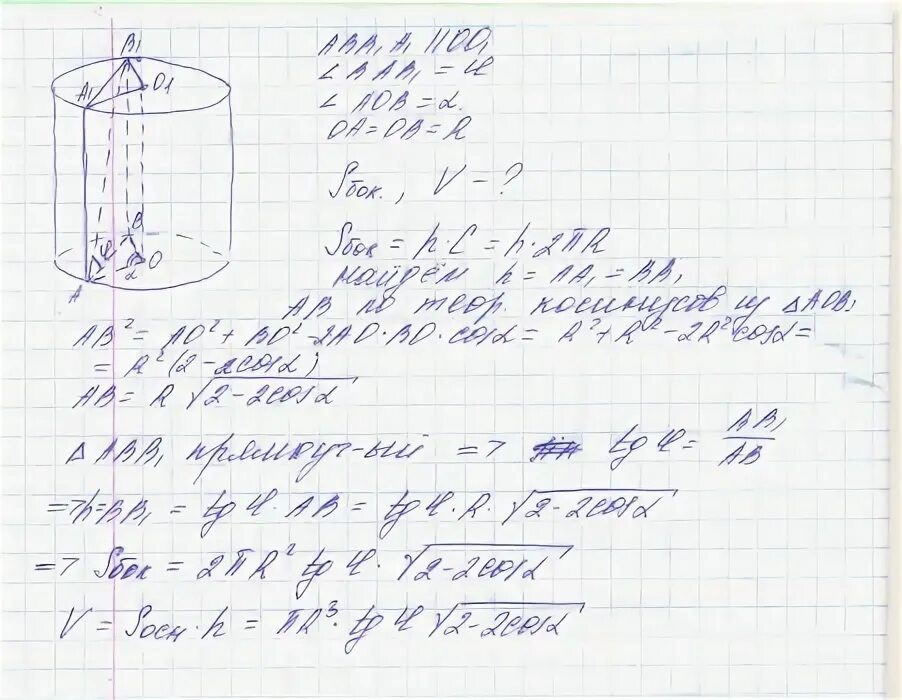 B₁
A₁ O₁
B
φ
A α O
ABB₁A₁ || OO₁
∠BAB₁ = φ
∠AOB = α.
OA = OB = R
Sбок., V - ?
Sбок = h·C = h·2πR
найдём h = AA₁ = BB₁
AB по теор. косинусов из △AOB₁
AB² = AO² + BO² - 2AO·BO·cosα = R² + R² - 2R²cosα =
= R²(2-2cosα)
AB = R √2-2cosα
△ABB₁ прямоуг-ый => tgφ = BB₁/AB
=> h = BB₁ = tgφ · AB = tgφ · R · √2-2cosα
=> Sбок = 2πR² tgφ · √2-2cosα
V = Sосн·h = πR³· tgφ √2-2cosα